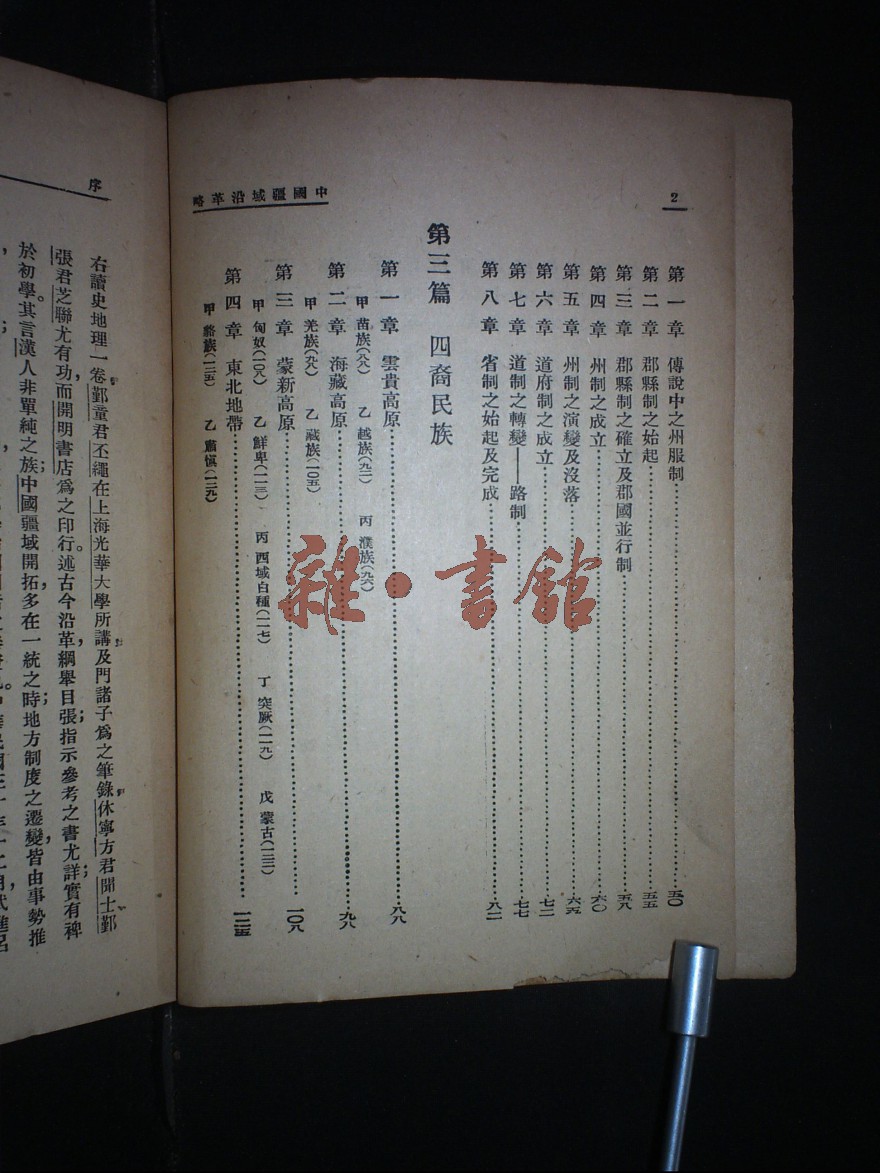 2
中國疆域沿革略
第一章 傳說中之州服制……五〇
第二章 郡縣制之始起……五五
第三章 郡縣制之確立及郡國並行制……五八
第四章 州制之成立……六〇
第五章 州制之演變及沒落……六五
第六章 道府制之成立……七二
第七章 道制之轉變——路制……七七
第八章 省制之始起及完成……八二
第三篇 四裔民族
第一章 雲貴高原……八八
甲 苗族(八八) 乙 越族(九二) 丙 濮族(九六)
第二章 海藏高原……九八
甲 羌族(九八) 乙 藏族(一〇五)
第三章 蒙新高原……一〇八
甲 匈奴(一〇八) 乙 鮮卑(一一三) 丙 西域白種(一一七) 丁 突厥(一一九) 戊 蒙古(一二二)
第四章 東北地帶……一二五
甲 貉族(一二五) 乙 肅愼(一二九)
序
右讀史地理一卷,鄞童君丕繩在上海光華大學所講,及門諸子爲之筆錄,休寧方君聞士,鄞
張君芝聯尤有功,而開明書店爲之印行。述古今沿革,綱舉目張;指示參考之書,尤詳實有裨
於初學。其言漢人非單純之族;中國疆域開拓,多在一統之時;地方制度之遷變,皆由事勢推